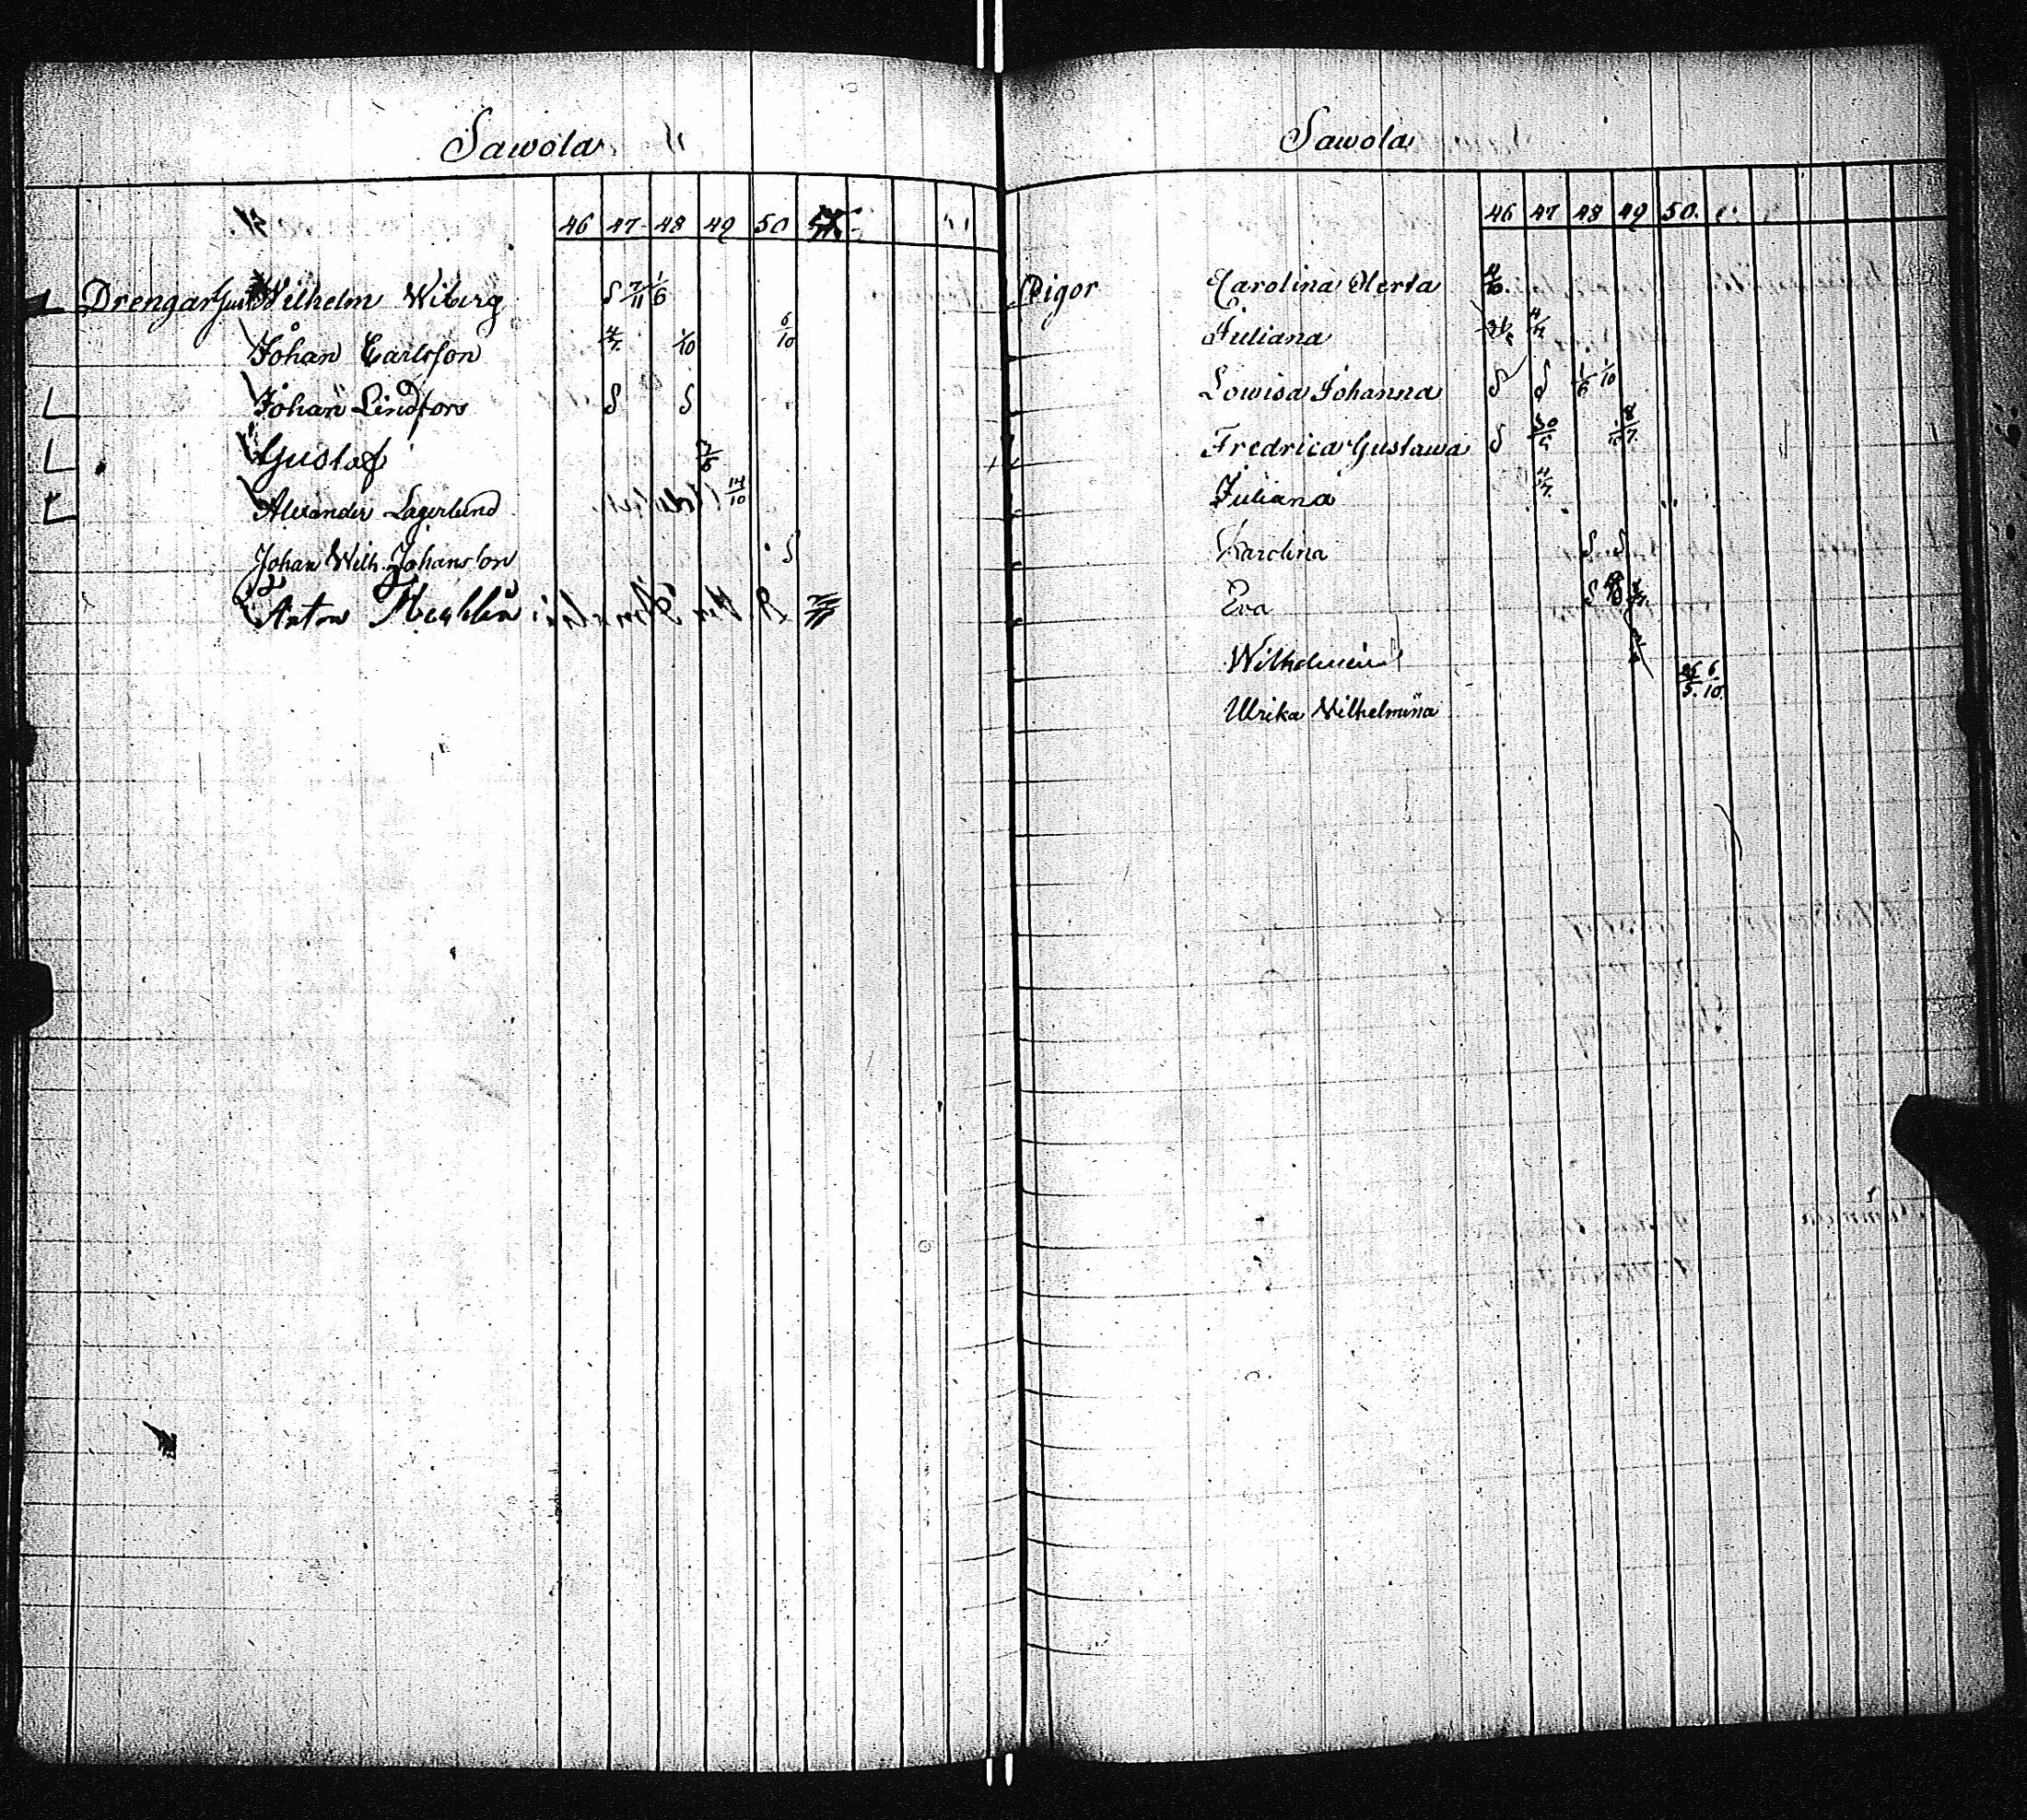 Sawola
46 47 48 49 50
Drengar Gust Wilhelm Wiberg S 7/11 1/6
Johan Carlsson 4/7 1/10 6/10
Johan Lindfors S S
Gustaf
Alexander Lagerlund 14/10
Johan Wilh. Johansson S
Anton
Sawola
46 47 48 49 50.
Pigor Carolina Merta
Juliana
Lowisa Johanna S S 1/6 1/10
Fredrica Gustawa S 30/5 8/7
Juliana
Karolina S S
Eva S
Wilhelmina
Ulrika Wilhelmina 26/5. 6/10